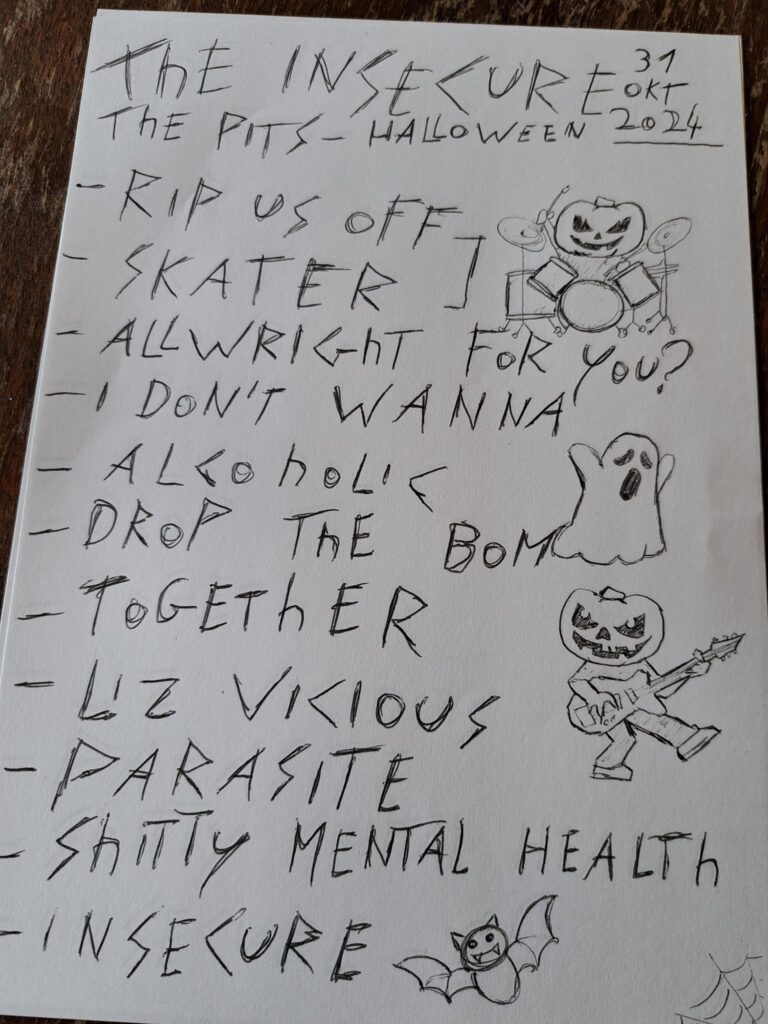 ThE INSECURE
31
OKT
2024
ThE PITS - HALLOWEEN
- RIP US OFF
- SKATER
- ALLWRIGhT FOR YOU?
- I DON'T WANNA
- ALCOhOLIC
- DROP ThE BOM
- TOGEThER
- LIZ VICIOUS
- PARASITE
- ShITTY MENTAL HEALTh
- INSECURE